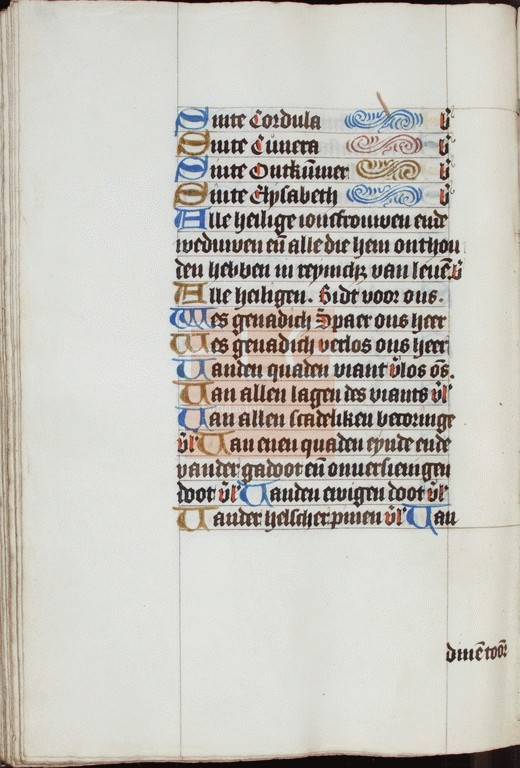 Sinte Cordula b̃
Sinte Cunera b̃
Sinte Ontkūmer b̃
Sinte Elysabeth b̃
Alle heilige ioncfrouwen ende
weduwen eñ alle die hem onthou
den hebben in reynich; van leuē. b̃
Alle heiligen. Bidt voor ons.
Wes genadich Spaer ons heer
Wes genadich verlos ons heer
Vanden quaden viant v̄los ōs.
Van allen lagen des viants v̄l'
Van allen scadeliken becoringe
v̄l' Van enen quaden eynde ende
vander gadoot eñ onuersienigen
doot v̄l' Vanden ewigen doot v̄l'
Vander helscher pinen v̄l' Van
dinē toōr